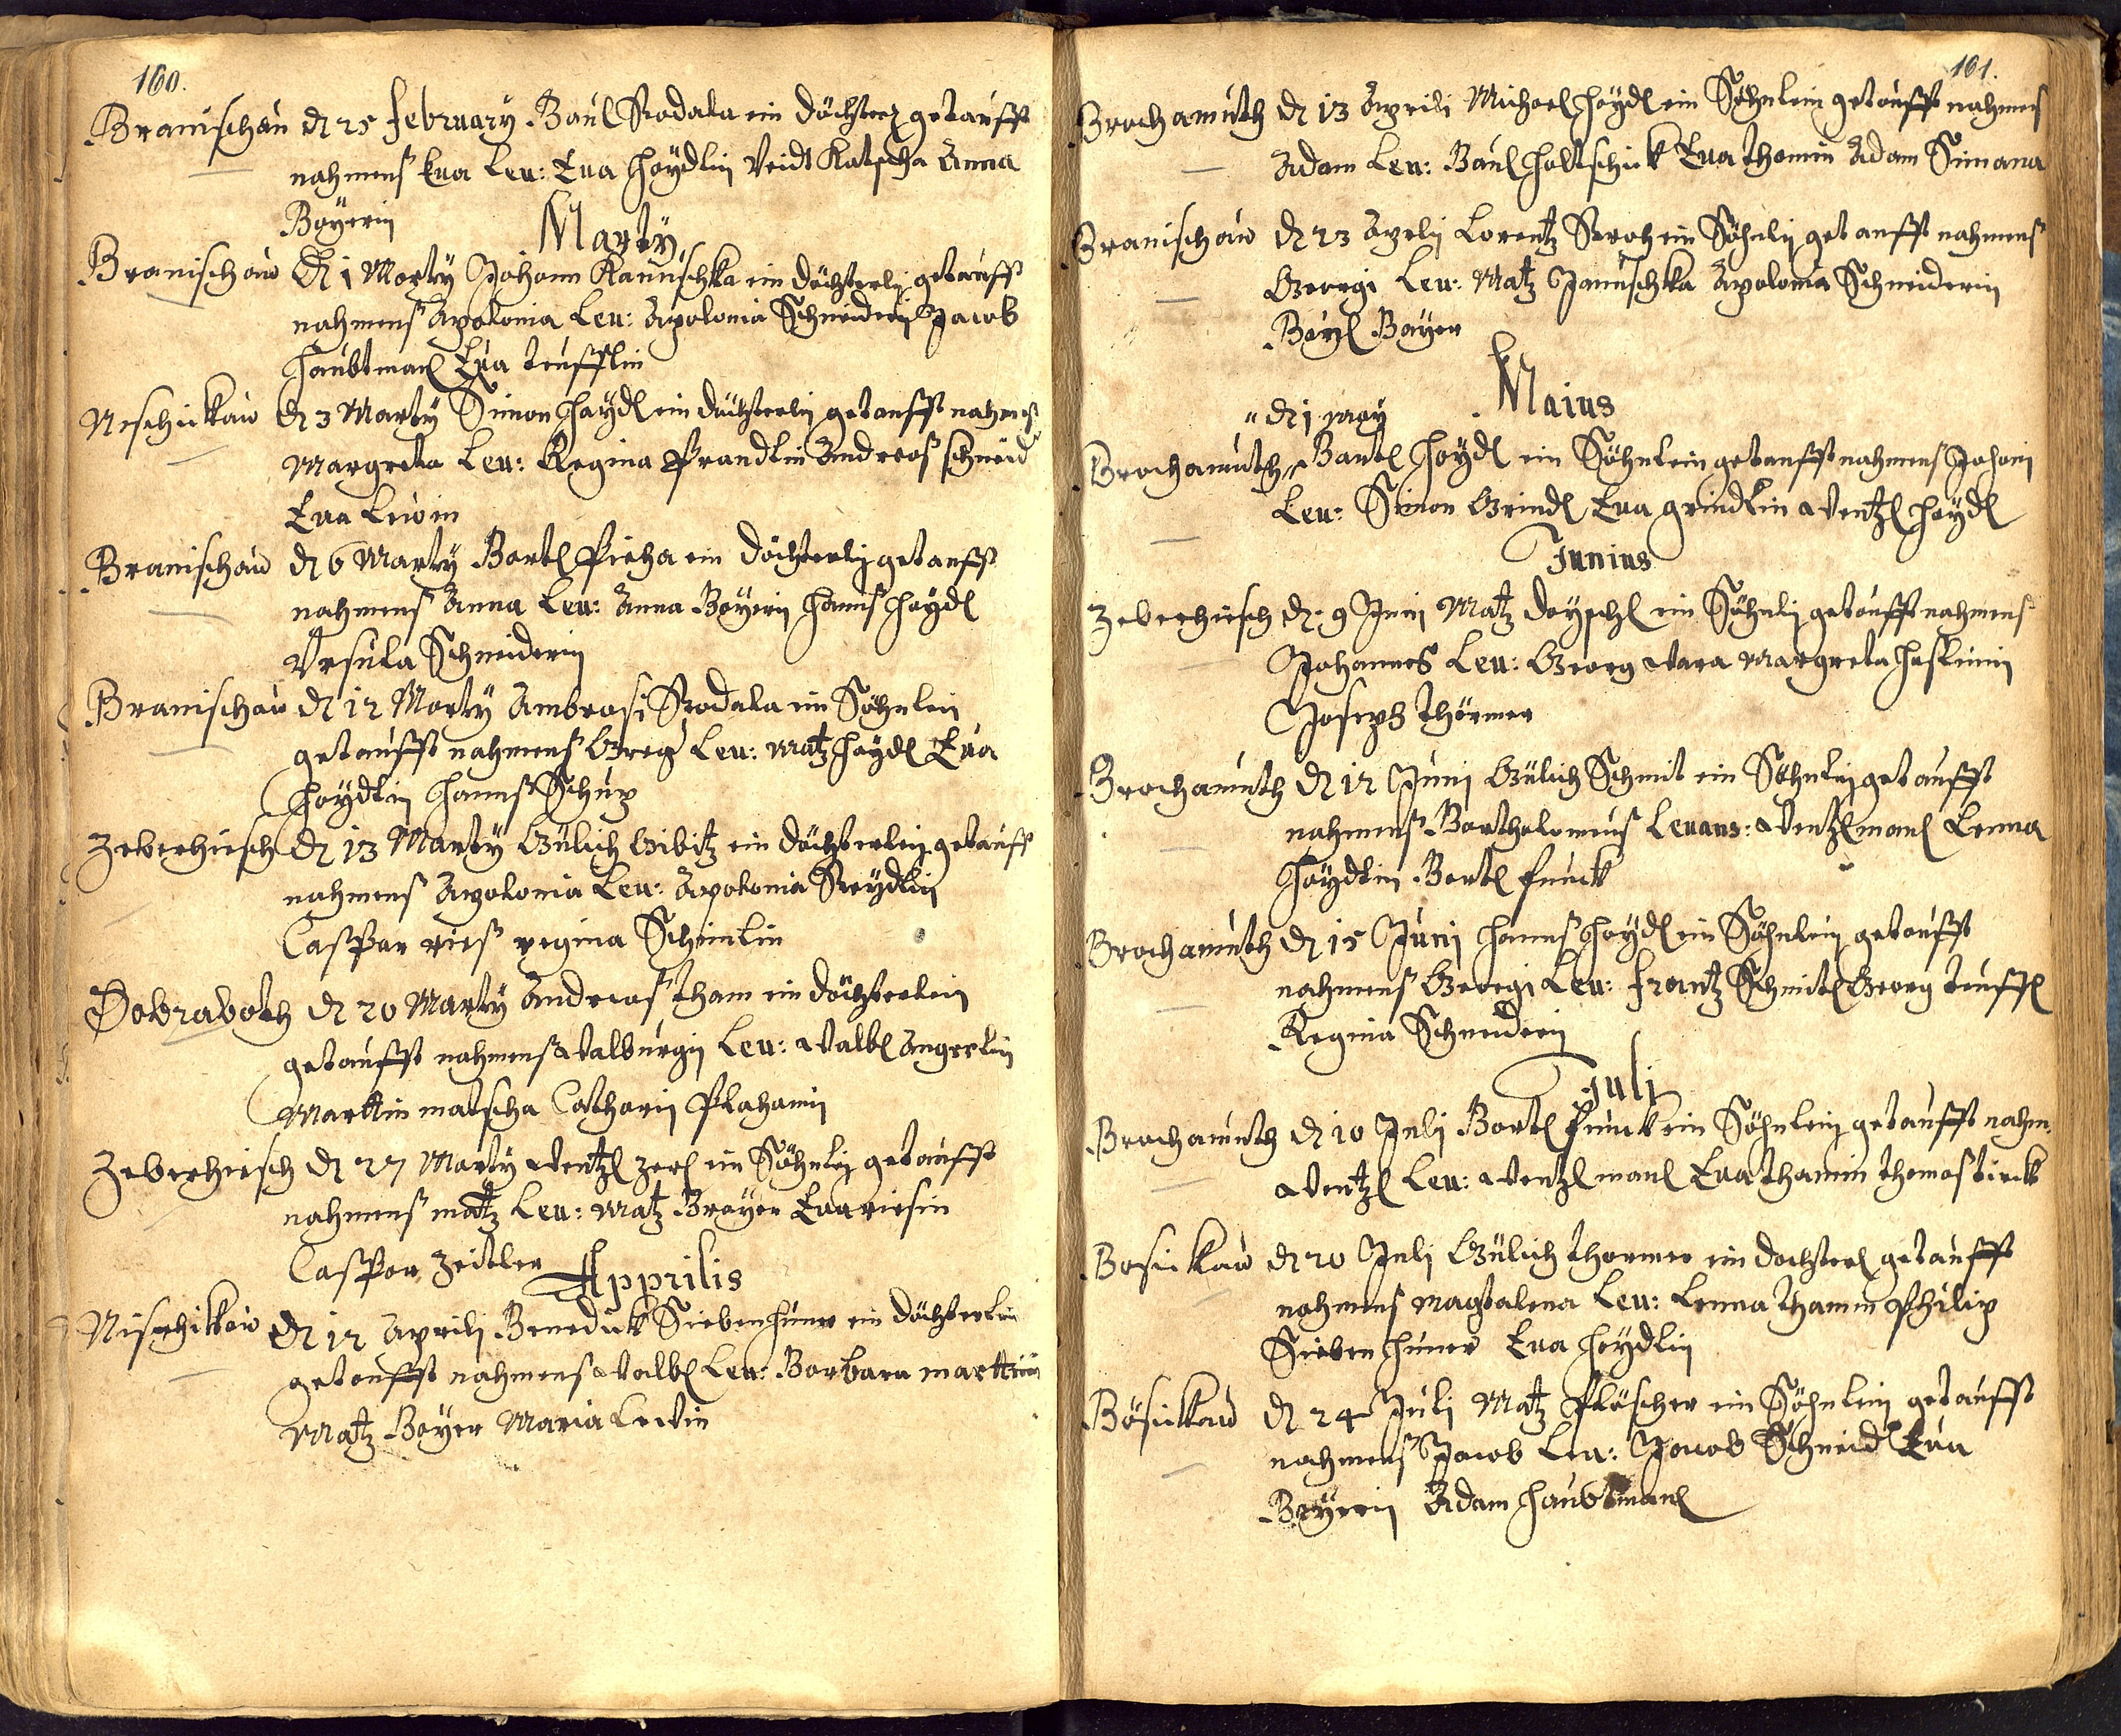 160.
Branischau dn 25 February Baul Srodala ein döchterl getaufft
nahmens Eua Leu: Eua Heydlin Veidt Katscha Anna
Beyerin
Marty
Branischau dn 1 Marty Johann Kanuschka ein döchterlj getaufft
nahmens Apolonia Leu: Apolonia Schneiderin Jacob
Haubtman Eua teufflin
Neschickau dn 3 Marty Simon Haydl ein döchterlin getaufft nahmens
Margreta Leu: Regina Prandlin Andreas Schneid
Eua Lewin
Branischau dn 6 Marty Bartl Picha ein döchterlj getaufft
nahmens Anna Leu: Anna Beyerin Hanns Heydl
Vrsula Schneiderin
Branischau dn 12 Marty Ambrosi Srodala ein Söhnlein
getaufft nahmens Greg Leu: Matz Heydl Eua
Heydlin Hanns Schup
Zeberhiesch dn 13 Marty Gülich Gibitz ein döchterlein getaufft
nahmens Apolonia Leu: Apolonia Seydlin
Caspar ries regina Scheinlin
Dobrawoth dn 20 Marty Andreas Tham ein döchterlein
getaufft nahmens Walburgij Leu: Walbl Angerlin
Marttin matscha Catharin Plahamin
Zeberhiesch dn 27 Marty Wentzl zerl ein Söhnlej getaufft
nahmens matz Leu: Matz Breyer Eua riesin
Caspar Zeitler
Apprilis
Nischikau dn 12 Aprili Benedick Siebenhüner ein döchterlin
getaufft nahmens Walbl Leu: Barbara marttin
Matz Beyer Maria Lewin
161.
Brochamuth dn 13 Aprili Michael Heydl ein Söhnlein getaufft nahmens
Adam Leu: Baul Holtschick Eua thomin Adam Simana
Branischau dn 23 Aprlij Lorentz Stroh ein Söhnlij getaufft nahmens
Georgi Leu: Matz Januschka Apolonia Schneiderin
Baul Bayer
Maius
dn 1 May
Brochamuth Bartl Heydl ein Söhnlein getaufft nahmens Johani
Leu: Simon Grindl Eua grindlin Wentzl Heydl
Junius
Zeberhiesch dn 9 Junij Matz doyschl ein Söhnlj getaufft nahmens
Johannes Leu: Georg Wara Margreta Haslinin
Joseph thörmer
Brochamuth dn 12 Junj Gülich Schmit ein Söhnlej getaufft
nahmens Bartholomeus Leuans: Wentzl manl Lenna
Heydlin Bartl Funck
Brochamuth dn 15 Junij Hanns Heydl ein Söhnlein getaufft
nahmens Georgi Leu: Frantz Schmitl Georg teuffl
Regina Schneiderin
Julj
Brochamuth dn 10 Julj Bartl Funck ein Söhnlein getaufft nahm:
Wentzl Leu: Wentzl manl Eua thamin thomas tirck
Bosickau dn 20 Julj Gülich thermer ein dochterl getaufft
nahmens Magdalena Leu: Lenna thamin Philip
Siebenhüner Eua Heydlin
Bösickau dn 24 Julj Matz Pläscher ein Söhnlein getaufft
nahmens Jacob Leu: Jacob Schneid Eua
Beyerin Adam Haubtmanl